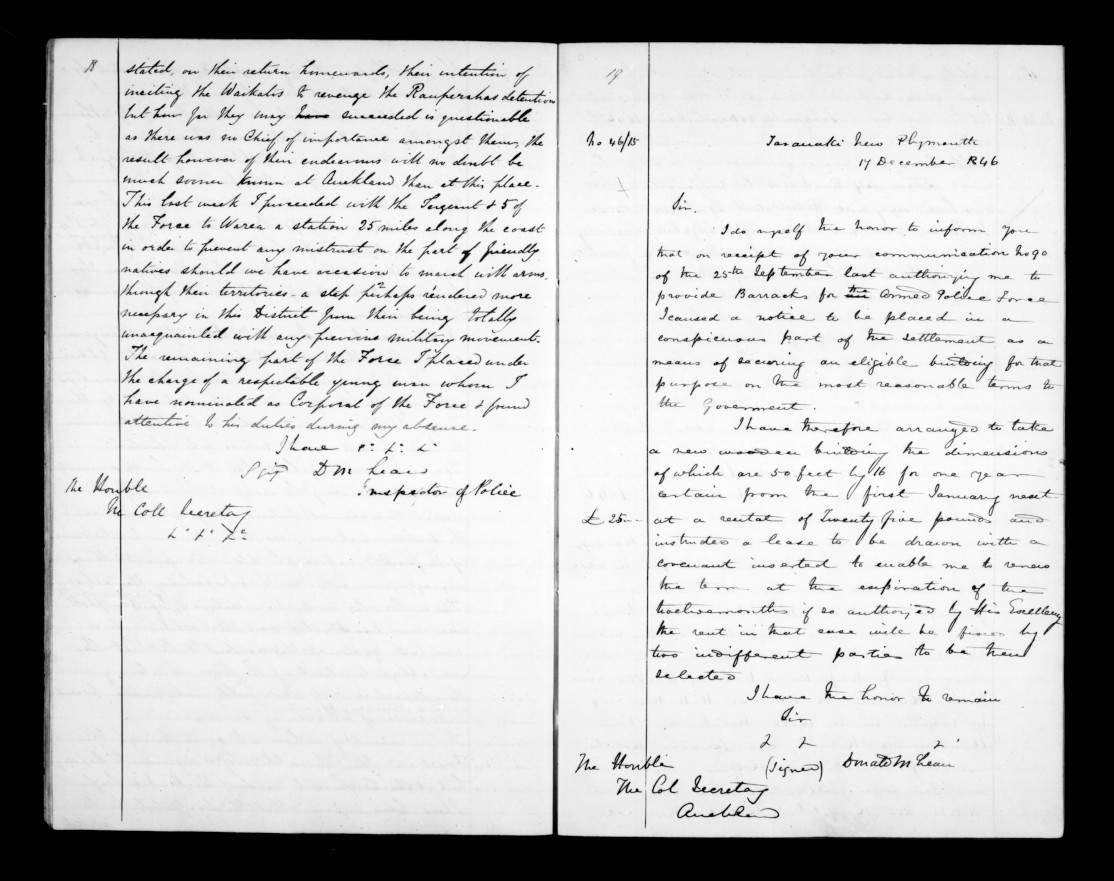 18
stated, on their return homewards, their intention of
inciting the Waikatos to revenge the Rauperahas detention
but how far they may have succeeded is questionable
as there was no Chief of importance amongst them, the
result however of their endeavours will no doubt be
much sooner known at Auckland than at this place.
This last week I proceeded with the Sergeant & 5 of
the Force to Warea a station 25 miles along the coast
in order to prevent any mistrust on the part of friendly
natives should we have occasion to march with arms
through their territories - a step perhaps rendered more
necessary in this District from their being totally
unacquainted with any previous military movements.
The remaining part of the Force I placed under
the charge of a respectable young man whom I
have nominated as Corporal of the Force & found
attentive to his duties during my absence.
I have &c &c &c
D M Lean
Inspector of Police
The Honble
The Coll Secretary
&c &c &c
19
No 46/15
Taranaki New Plymouth
17 December 1846
Sir.
I do myself the honor to inform you
that on receipt of your communication No 90
of the 25th September last authorizing me to
provide Barracks for the Armed Police Force
I caused a notice to be placed in a
conspicuous part of the settlement as a
means of securing an eligible building for that
purpose on the most reasonable terms to
the Goverment.
I have therefore arranged to take
a new wooden building the dimensions
of which are 50 feet by 16 for one year
certain from the first January next
£ 25 - - at a rental of Twenty five pounds and
instructed a lease to be drawn with a
covenant inserted to enable me to renew
the term at the expiration of the
twelvemonths if so authorized by His Excellency
the rent in that case will be fixed by
two indifferent parties to be then
selected
I have the honor to remain
Sir
& & &
(Signed) Donald M Lean
The Honble
The Col Secretary
Auckland